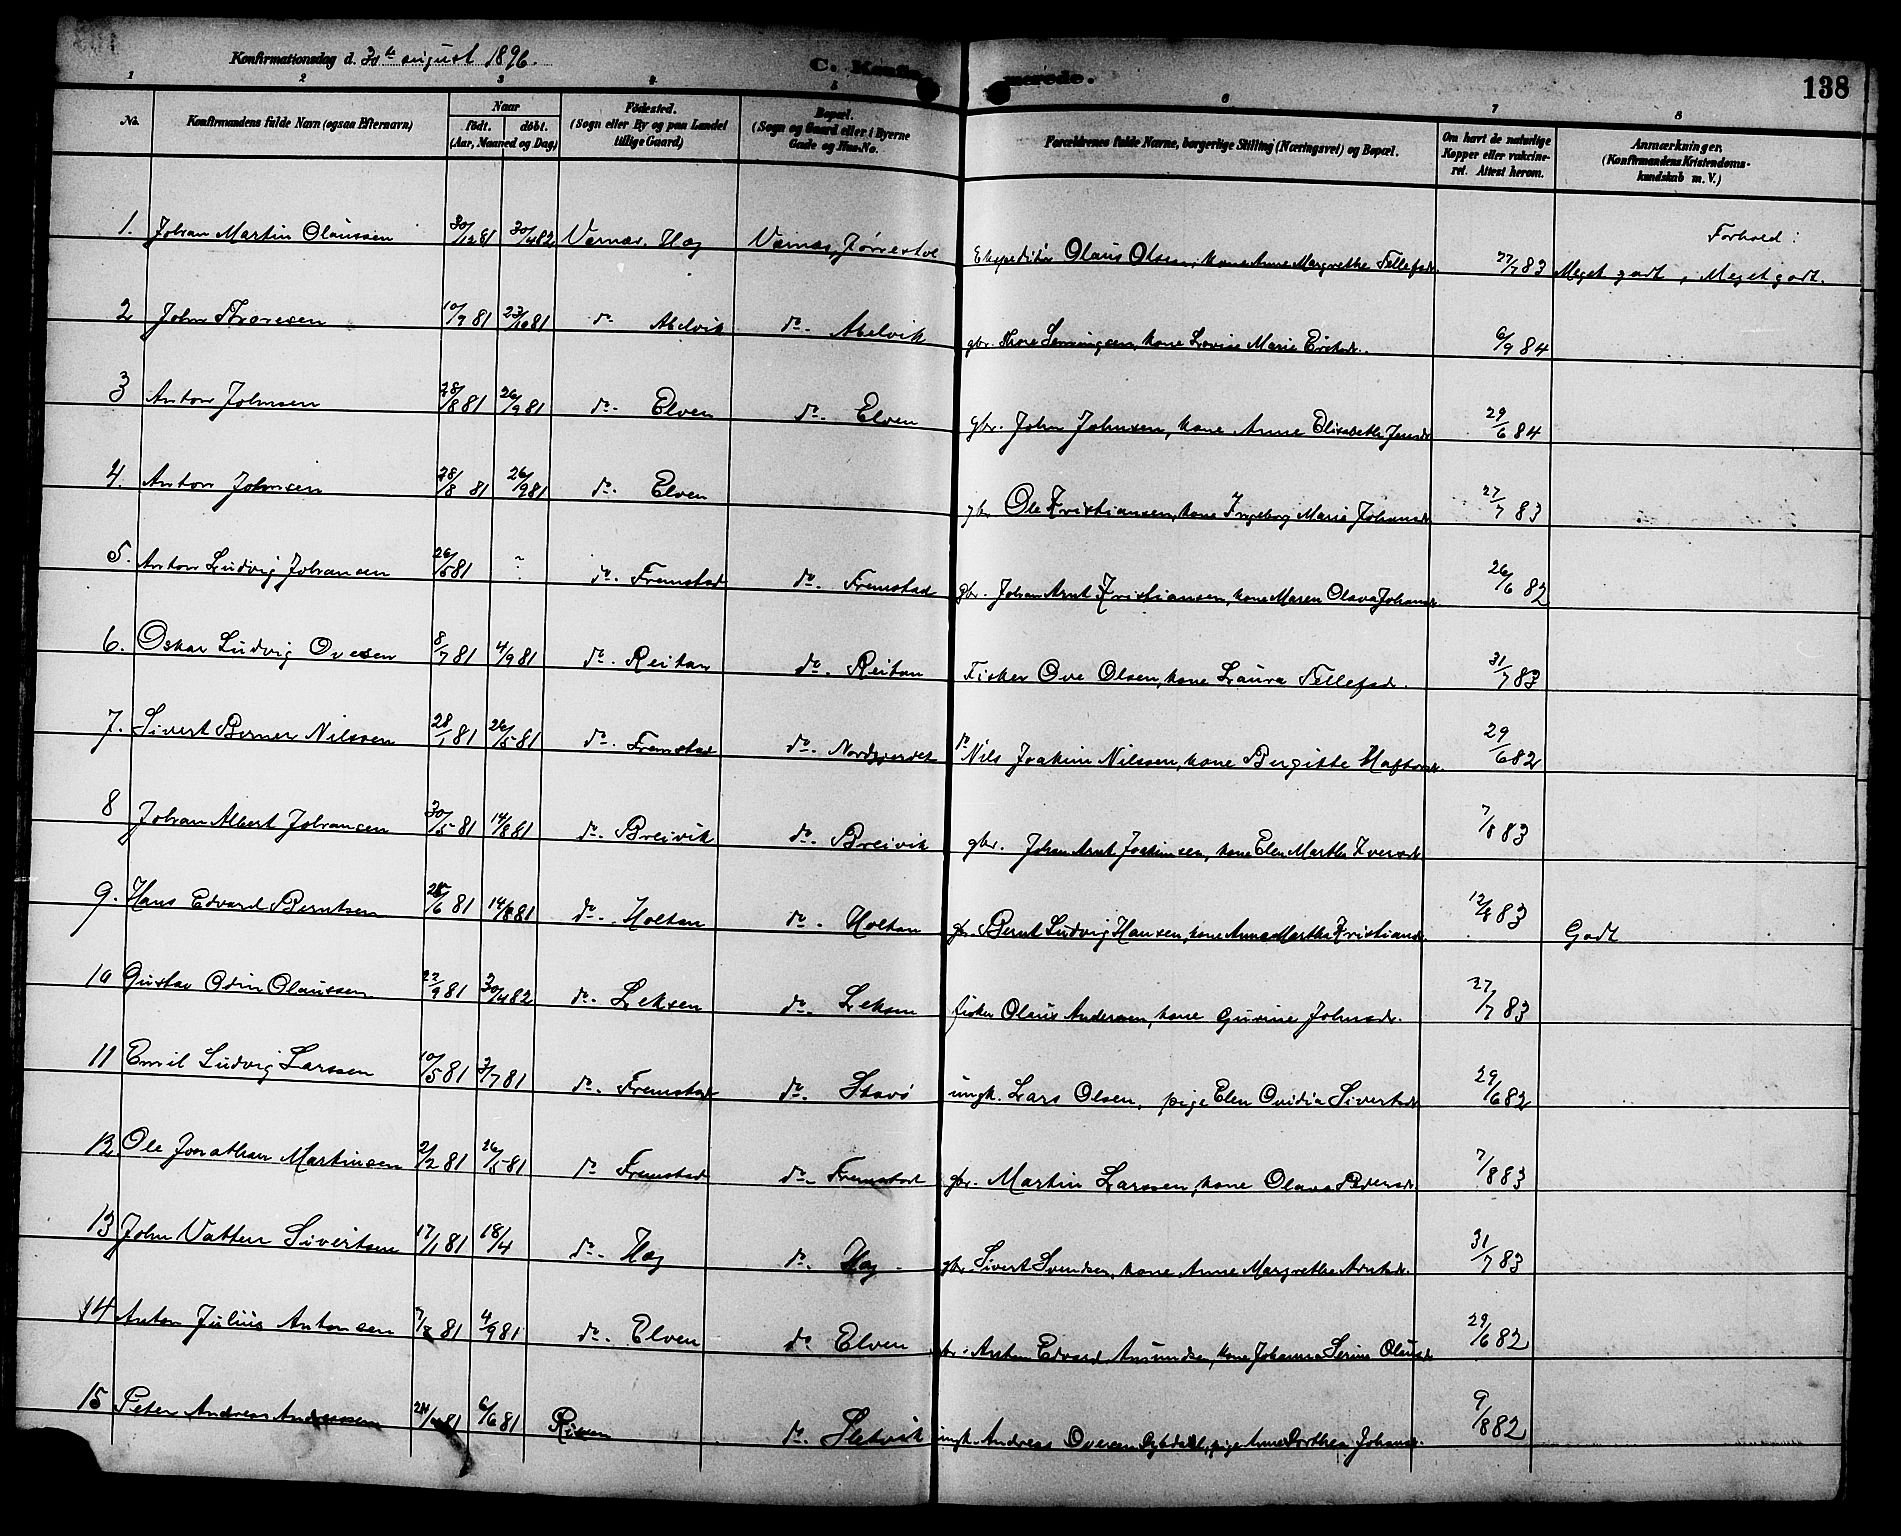 Konfirmationsdag d. 30te august 1896.
C. Konfir merede.
138
1 2 3 4 5 6 7 8
No.
Konfirmandens fulde Navn (ogsaa Efternavn)
Naar
født. døbt.
(Aar, Maaned og Dag)
Fødested.
(Sogn eller By og paa Landet
tillige Gaard)
Bopæl.
(Sogn og Gaard eller i Byerne
Gade og Hus-No.
Forældrenes fulde Navne, borgerlige Stilling (Næringsvei) og Bopæl.
Om havt de naturlige
Kopper eller vakcine-
ret. Attest herom.
Anmærkninger.
(Konfirmandens Kristendoms-
kundskab m. V.)
Forhold:
1. Johan Martin Olaussen 30/12 81 30/4 82 Værnæs, Hag Værnæs, Expeditør Olaus Olsen, kone Anne Margrethe Tellefsd. 27/7 83 Meget godt, Meget godt.
2 John Thoresen 10/9 81 23/10 81 do. Abelvik do. Abelvik gbr. Thore kone Lovise Marie 6/9 84
3 Anton Johnsen 28/8 81 26/9 81 do. Elven do. Elven gbr. John Johnsen, kone Anne Elisabeth Jensd. 29/6 84
4. Anton Johnsen 28/8 81 26/9 81 do. Elven gbr. Ole Kristiansen, kone Ingeborg Marie Johansd. 27/7 83
5. Anton Ludvig Johansen 26/5 81 do. Fremstad do. Fremstad gbr. Johan Arnt Kristiansen, kone Maren Olava Johansd. 26/6 82
6. Oskar Ludvig Ovesen 8/7 81 4/9 81 do. Reitan do. Reitan Fisker Ove Olsen, kone Laura Tellefsd. 31/7 83
7. Sivert Berner Nilssen 28/1 81 26/5 81 do. Fremstad do. do Nils Joakim Nilssen, kone Birgitte 29/6 82
8 Johan Albert Johansen 30/5 81 14/8 81 do. Breivik do. Breivik gbr. Johan Arnt Joakimsen, kone Elen Martha Iversd. 7/8 83
9. Hans Edvard Berntsen 25/6 81 14/8 81 do. Holtan do. Holtan gbr. Bernt Ludvig Hansen, kone Anne Martha Kristiansd. 12/8 83 Godt
10 Gustav Odin Olaussen 22/9 81 30/4 82 do. Leksen do. Leksen fisker Olaus Andersen, kone Gurine Johnsd. 27/7 83
11 Emil Ludvig Larssen 10/5 81 3/7 81 do. Fremstad do. Stavø ungk. Lars Olsen, pige Elen Ovidia Sivertsd. 29/6 82
12 Ole Jonathan Martinsen 2/2 81 26/5 81 do Fremstad do. Fremstad gbr. Martin Larssen, kone Olava Pedersd. 7/8 83
13 John Vatten Sivertsen 17/1 81 18/4 do. Hag do. Hag gbr. Sivert Svendsen, kone Anne Margrethe Arntsd. 31/7 83
14 Anton Julius Antonsen 81 4/9 81 do. Elven do Elven gbr. Anton Edvard Amundsen, kone Johanna Serine Olausd. 29/6 82
15 Peter Andreas Andreassen 81 6/6 81 Rissen do. Sletvik ungk. Andreas Ovesen pige Anne Dorthea Johansd. 9/8 82